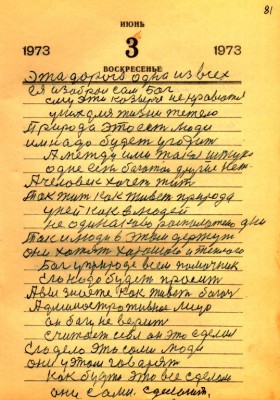 81
ИЮНЬ
1973 3 1973
ВОСКРЕСЕНЬЕ
Эта дорога одна из всех
Ея изоброл сам Бог
ему эти козыря не нравятся
у них для жизни тепело
Природа это есть люди
им надо будет угодит
А между ими такая штука
одне есть богатаи другие нет
А человик хочет жит
Так жит как живет природа
у ней как в людей
не одинаково располагаю дни
Так и люди в этим держут
они хотят хорошова и тёплова
Бог у природе всем помочник
ево надо будет просит
А вы знаете как живет богач
Административное лицо
он Богу не верит
Считает себя он это сделал
Сдело это сами люди
они у этом говарят
как будто это все сделали
они сами. сделоит.